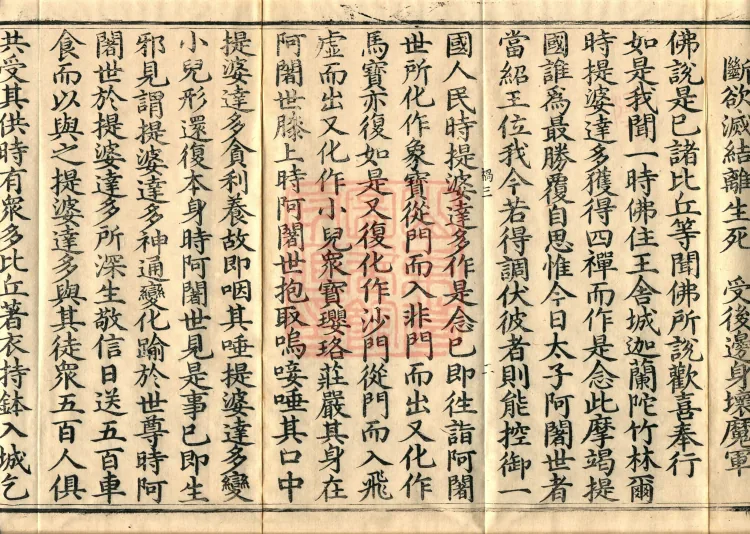 斷欲滅結離生死　受後邊身壞魔軍
佛說是已諸比丘等聞佛所說歡喜奉行
如是我聞一時佛住王舍城迦蘭陀竹林爾
時提婆達多獲得四禪而作是念此摩竭提
國誰爲最勝覆自思惟今日太子阿闍世者
當紹王位我今若得調伏彼者則能控御一
國人民時提婆達多作是念已即往詣阿闍
世所化作象寶從門而入非門而出又化作
馬寶亦復如是又復化作沙門從門而入飛
虛而出又化作小兒衆寶瓔珞莊嚴其身在
阿闍世膝上時阿闍世抱取嗚唼唾其口中
提婆達多貪利養故即咽其唾提婆達多變
小兒形還復本身時阿闍世見是事已即生
邪見謂提婆達多神通變化踰於世尊時阿
闍世於提婆達多所深生敬信日送五百車
食而以與之提婆達多與其徒衆五百人俱
共受其供時有衆多比丘著衣持鉢入城乞